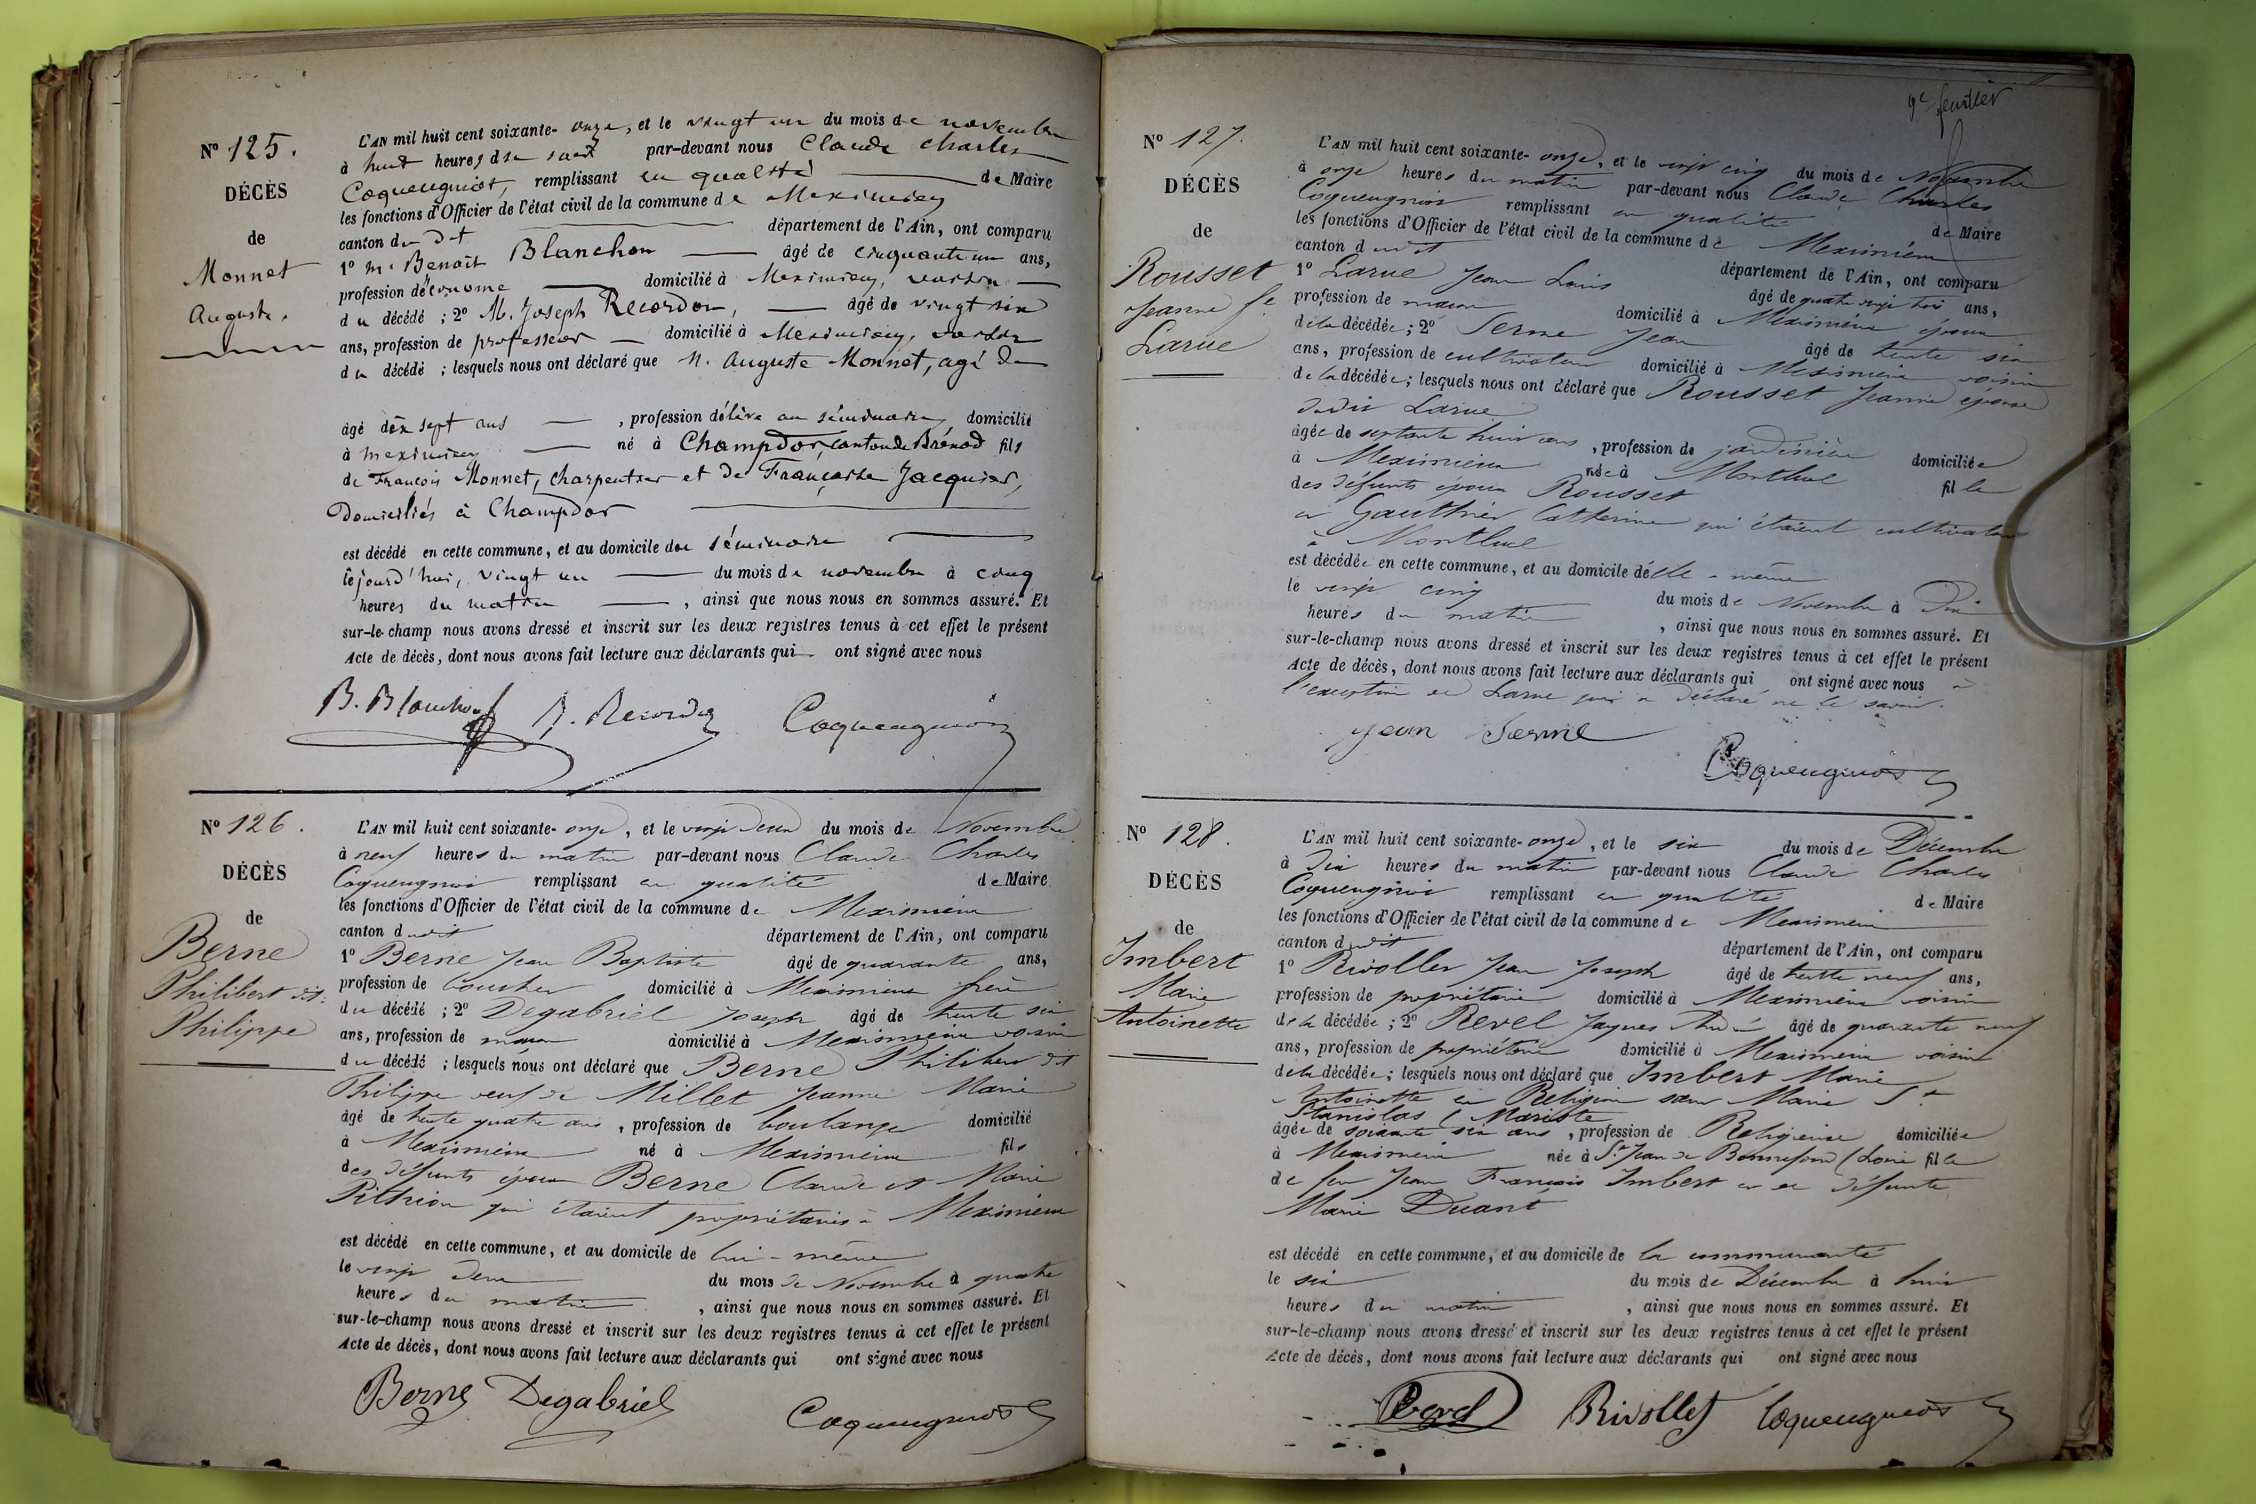 N° 125.
DÉCÈS
de
Monnet
Auguste.
L'AN mil huit cent soixante-onze, et le vingt un du mois de novembre
à huit heures du soir par-devant nous Claude Charles
Coquengniot, remplissant en qualité de Maire
les fonctions d'Officier de l'état civil de la commune de Meximieux
canton du dit département de l'Ain, ont comparu
1° M. Benoit Blanchon âgé de cinquante un ans,
profession d'économe domicilié à Meximieux, voisin
du décédé ; 2° M. Joseph Recordon, âgé de vingt six
ans, profession de professeur domicilié à Meximieux, voisin
du décédé ; lesquels nous ont déclaré que M. Auguste Monnet, agé de
âgé dix sept ans , profession d'élève au séminaire, domicilié
à meximieux né à Champdor, canton de Brénod fils
de François Monnet, charpentier et de Françoise Jacquier,
Domiciliés à Champdor
est décédé en cette commune, et au domicile du séminaire
le jourd'hui, vingt un du mois de novembre à cinq
heures du matin , ainsi que nous nous en sommes assuré. Et
sur-le-champ nous avons dressé et inscrit sur les deux registres tenus à cet effet le présent
Acte de décès, dont nous avons fait lecture aux déclarants qui ont signé avec nous
B. Blanchon J. Recordon Coquengniot
N° 126.
DÉCÈS
de
Berne
Philibert dit
Philippe
L'AN mil huit cent soixante-onze, et le vingt deux du mois de Novembre
à neuf heures du matin par-devant nous Claude Charles
Coquengniot remplissant en qualité de Maire
les fonctions d'Officier de l'état civil de la commune de Meximieux
canton dudit département de l'Ain, ont comparu
1° Berne Jean Baptiste âgé de quarante ans,
profession de boucher domicilié à Meximieux frère
du décédé ; 2° Degabriel Joseph âgé de trente six
ans, profession de maçon domicilié à Meximieux voisin
du décédé ; lesquels nous ont déclaré que Berne Philibert dit
Philippe veuf de Millet Jeanne Marie
âgé de trente quatre ans , profession de boulanger domicilié
à Meximieux né à Meximieux fils
des défunts époux Berne Claude et Marie
Pithion qui étaient propriétaires à Meximieux
est décédé en cette commune, et au domicile de lui-même
le vingt deux du mois de Novembre à quatre
heures du matin , ainsi que nous nous en sommes assuré. Et
sur-le-champ nous avons dressé et inscrit sur les deux registres tenus à cet effet le présent
Acte de décès, dont nous avons fait lecture aux déclarants qui ont signé avec nous
Berne Degabriel Coquengniot
9e feuillet
N° 127.
DÉCÈS
de
Rousset
Jeanne fe
Larue
L'AN mil huit cent soixante-onze, et le vingt cinq du mois de Novembre
à onze heures du matin par-devant nous Claude Charles
Coquengniot remplissant en qualité de Maire
les fonctions d'Officier de l'état civil de la commune de Meximieux
canton dudit département de l'Ain, ont comparu
1° Larue Jean Louis âgé de quatre vingt trois ans,
profession de maçon domicilié à Meximieux époux
de la décédée ; 2° Serme Jean âgé de trente six
ans, profession de cultivateur domicilié à Meximieux voisin
de la décédée ; lesquels nous ont déclaré que Rousset Jeanne épouse
dudit Larue
âgée de septante huit ans , profession de jardinière domiciliée
à Meximieux née à Montluel fille
des défunts époux Rousset
et Gauthier Catherine qui étaient cultivateurs
à Montluel
est décédée en cette commune, et au domicile d'elle-même
le vingt cinq du mois de Novembre à Dix
heures du matin , ainsi que nous nous en sommes assuré. Et
sur-le-champ nous avons dressé et inscrit sur les deux registres tenus à cet effet le présent
Acte de décès, dont nous avons fait lecture aux déclarants qui ont signé avec nous à
l'exception de Larue qui a déclaré ne le savoir.
Jean Serme
Coquengniot
N° 128.
DÉCÈS
de
Imbert
Marie
Antoinette
L'AN mil huit cent soixante-onze, et le six du mois de Décembre
à Dix heures du matin par-devant nous Claude Charles
Coquengniot remplissant en qualité de Maire
les fonctions d'Officier de l'état civil de la commune de Meximieux
canton dudit département de l'Ain, ont comparu
1° Rivollet Jean Joseph âgé de trente neuf ans,
profession de propriétaire domicilié à Meximieux voisin
de la décédée ; 2° Revel Jaques André âgé de quarante neuf
ans, profession de propriétaire domicilié à Meximieux voisin
de la décédée ; lesquels nous ont déclaré que Imbert Marie
Antoinette en Religion sœur Marie St
Stanislas (Mariste
âgée de soixante six ans , profession de Religieuse domiciliée
à Meximieux née à St Jean de Bonnefond (Loire fille
de feu Jean François Imbert et de défunte
Marie Duant
est décédé en cette commune, et au domicile de la communauté
le six du mois de Décembre à huit
heures du matin , ainsi que nous nous en sommes assuré. Et
sur-le-champ nous avons dressé et inscrit sur les deux registres tenus à cet effet le présent
Acte de décès, dont nous avons fait lecture aux déclarants qui ont signé avec nous
Revel Rivollet Coquengniot